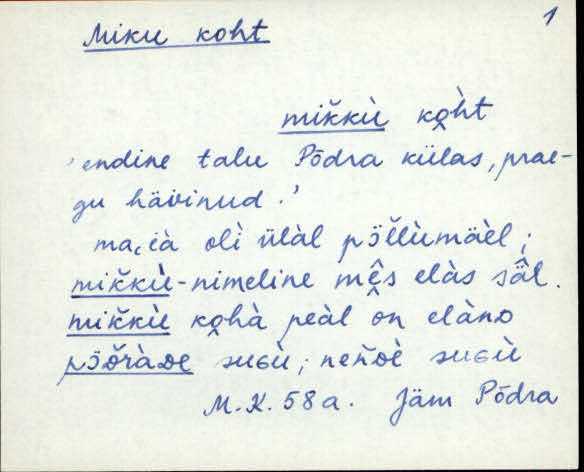 1
Miku koht
mik̆kù kо̭̀ht
'endine talu Põdra külas, prae-
gu hävinud.'
ma,ìà olì ülàl pɔ̈l̆lùmäèl;
mik̆kù-nimeline mê̬s elàs sä̂l.
mik̆kù ko̭hà peàl ôn elànᴅ
pɔ̈ŏ̈ràᴅe suɢù; nen̆ᴅè suɢù
M.K. 58 a. Jäm Põdra